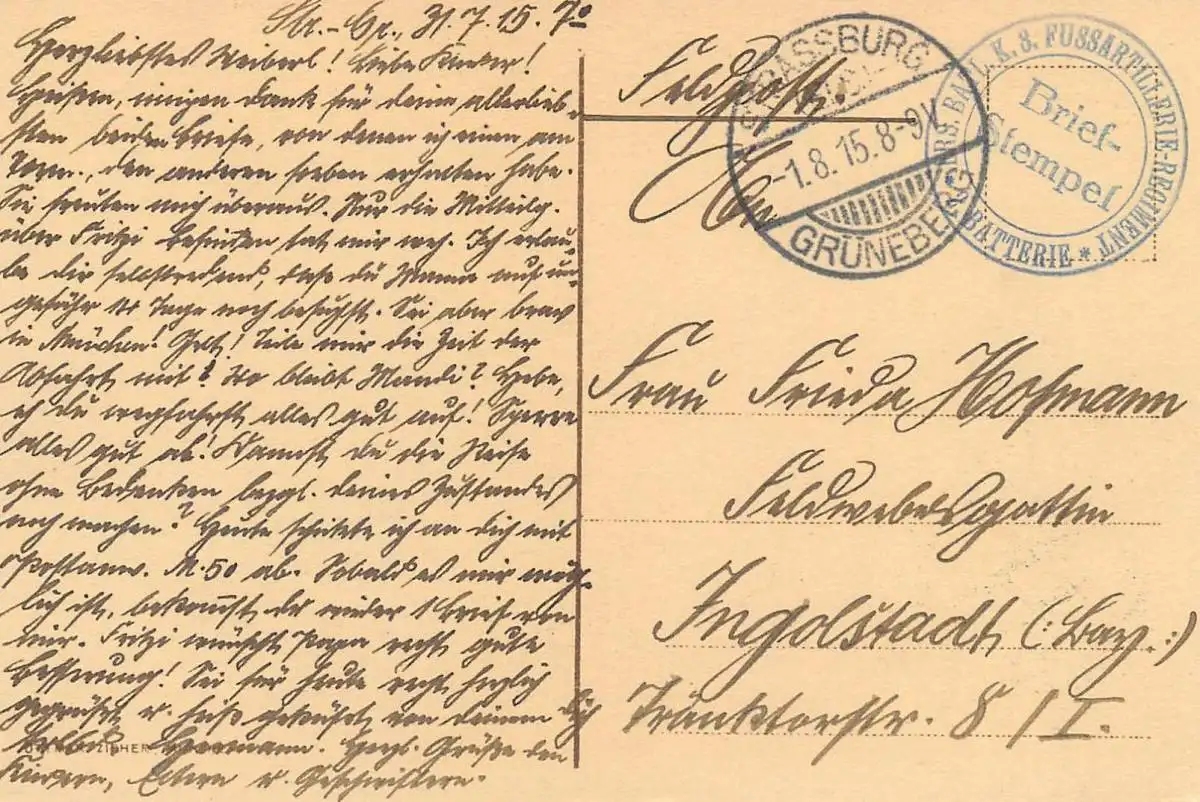 Str.-Gr., 31.7.15. 7°
Herzliebstes Weiberl! Liebe Kinder!
Süßen, innigen Dank für deine allerlieb-
sten beiden Briefe, von denen ich einen am
den anderen soeben erhalten habe.
Sie freuten mich überaus. Nur die Mitteilg.
über Fritzi Befinden tat mir weh. Ich erlau-
be dir selbstredend, daß du Mama auf un-
gefähr 14 Tage noch besuchst. Sei aber brav
in München! Gelt! Teile mir die Zeit der
Abfahrt mit! Wo bleibt Mandi? Hebe,
eh du wegfährst alles gut auf! Sperre
alles gut ab! Kannst du die Reise
ohne Bedenken bezgl. deines Zustandes
noch machen? Heute schickte ich an dich mit
Postanw. M. 50 ab. Sobald es mir mög-
lich ist, bekommst du wieder 1 Brief von
mir. Fritzi wünscht Papa recht gute
Besserung! Sei für heute recht herzlich
gegrüßt u. heiß geküßt von deinem dich
Hermann. Herzl. Grüße den
Kindern, Eltern u. Geschwistern.
Feldpost
STRASSBURG
-1.8.15. 8-9V.
GRÜNEBERG
K. 3. FUSSARTILLERIE-REGIMENT
BATTERIE *
Brief-
Stempel
Frau Frieda Hofmann
Feldwebelsgattin
Ingolstadt (:Bay.:)
Tränktorstr. 8/I.